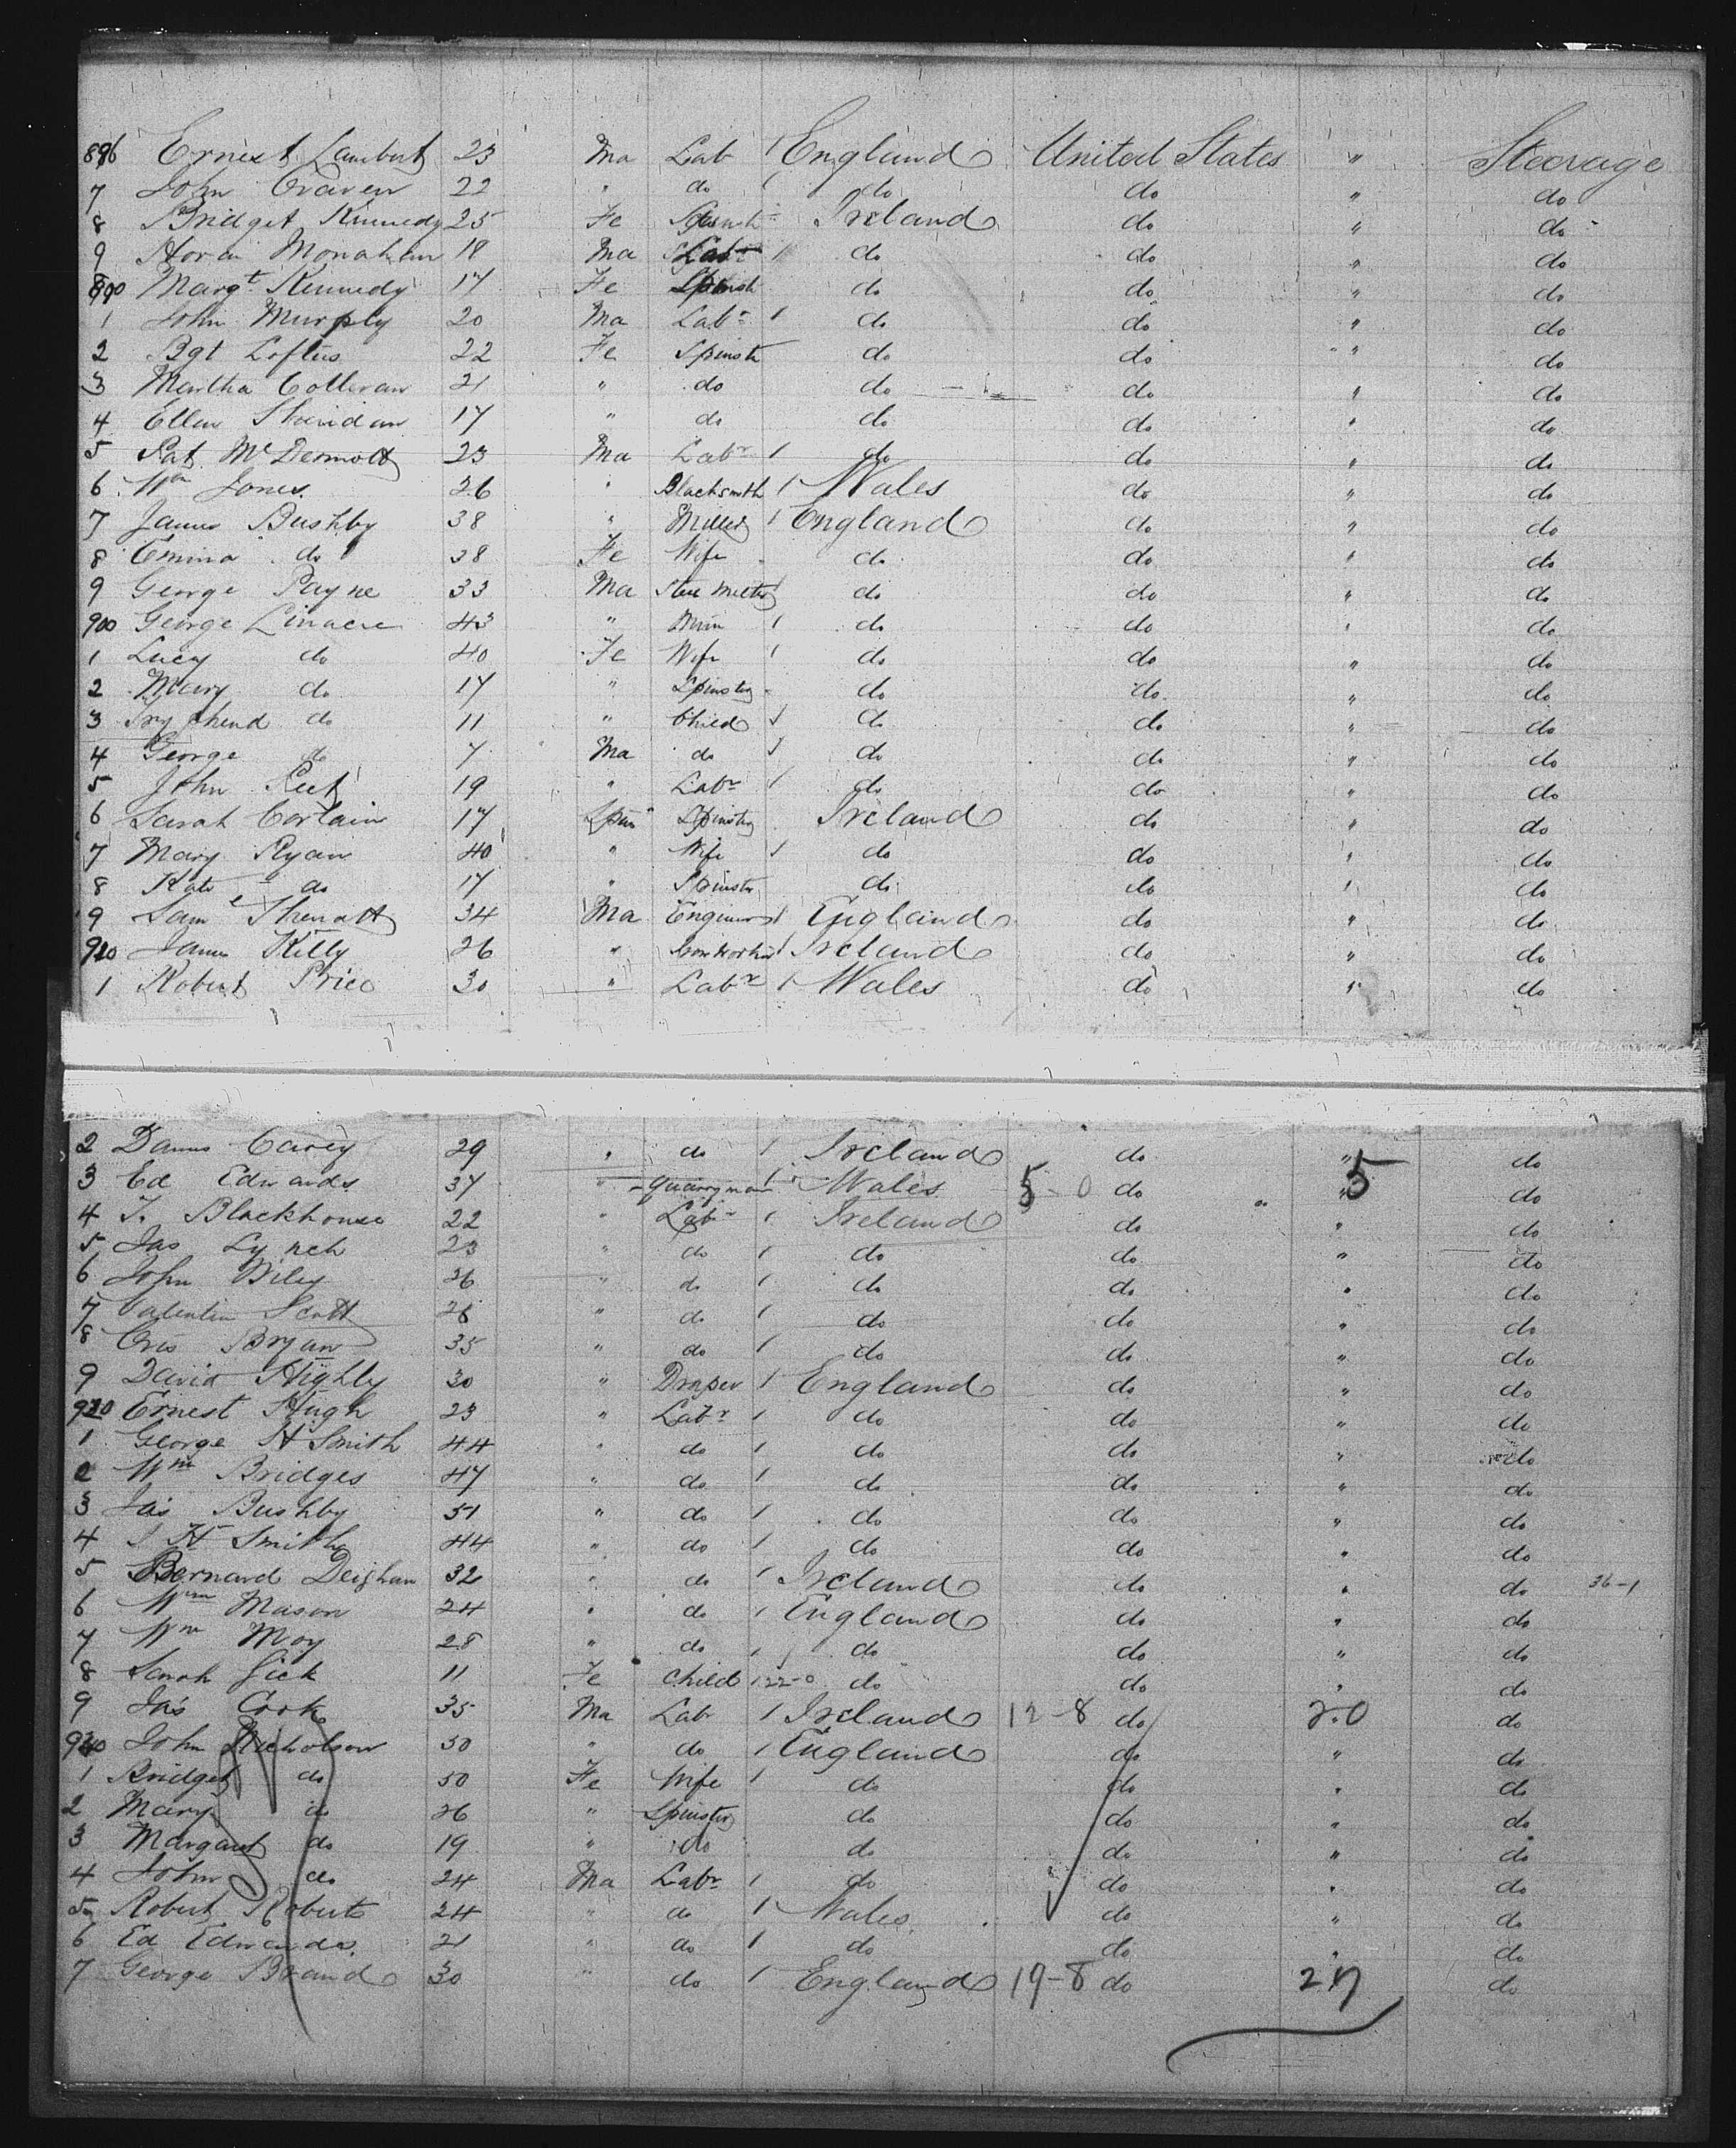 896 Ernest Lambert 23 Ma Lab 1 England United States " Steerage
7 John Craven 22 " do 1 do do " do
8 Bridget Kennedy 25 Fe Spinstr Ireland do " do
9 Monahan 18 Ma Labr 1 do do " do
Margt Kennedy 17 Fe Spinstr do do " do
1 John Murphy 20 Ma Labr 1 do do " do
2 Bgt Loftus 22 Fe Spinstr do do " do
3 Martha 21 " do do do " do
4 Ellen Sheridan 17 " do do do " do
5 Pat McDermott 23 Ma Labr 1 do do " do
6 Wm Jones 26 " Blacksmith 1 Wales do " do
7 James Bushby 38 " Miller 1 England do " do
8 Emma do 38 Fe Wife do do " do
9 George Payne 33 Ma 1 do do " do
900 George Linacre 43 " Min 1 do do " do
1 Lucy do 40 Fe Wife 1 do do " do
2 Mary do 17 " Spinster do do " do
3 do 11 " Child 1 do do " do
4 George do 7 Ma do 1 do do " do
5 John 19 " Labr 1 do do " do
6 Sarah 17 Spin Spinster Ireland do " do
7 Mary Ryan 40 " Wife 1 do do " do
8 Kate do 17 " Spinstr do do " do
9 Saml 34 Ma Engineer 1 England do " do
910 James Kelly 26 " Ironworker 1 Ireland do " do
1 Robert Price 30 " Labr 1 Wales do " do
2 Carey 29 " do 1 Ireland do " do
3 Ed Edwards 37 " Quarryman 1 Wales 5-0 do " 5 do
4 T. Blackhouse 22 " Labr 1 Ireland do " do
5 Jas Lynch 23 " do 1 do do " do
6 John 26 " do 1 do do " do
7 Valentin Scott 28 " do 1 do do " do
8 Bryan 35 " do 1 do do " do
9 David Highly 30 " Draper 1 England do " do
920 Ernest Hugh 23 " Labr 1 do do " do
1 George H Smith 44 " do 1 do do " do
2 Wm Bridges 47 " do 1 do do " do
3 Jas Bushby 51 " do 1 do do " do
4 H Smith 44 " do 1 do do " do
5 Bernard Deighan 32 " do 1 Ireland do " do 36-1
6 Wm Mason 24 " do 1 England do " do
7 Wm Moy 28 " do 1 do do " do
8 Sarah 11 Fe Child 1 22-0 do do " do
9 Jas Cook 35 Ma Lab 1 Ireland 12-8 do 20 do
John Nicholson 50 " do 1 England do " do
1 Bridget do 50 Fe Wife 1 do do " do
2 Mary do 26 " Spinster do do " do
3 Margaret do 19 " do do do " do
4 John do 24 Ma Labr 1 do do " do
5 Robert Roberts 24 " do 1 Wales do " do
6 Ed Edwards 21 " do 1 do do " do
7 George Brand 30 " do 1 England 19-8 do 27 do